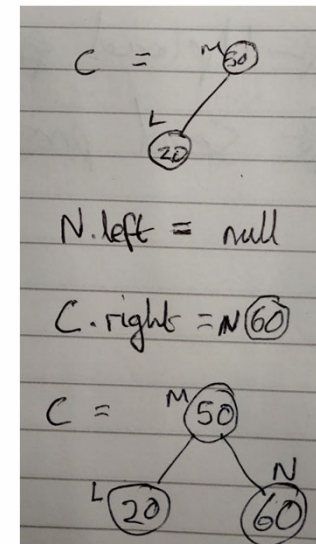 C = M 50
L 20
N.left = null
C.right = N 60
C = M 50
L 20 N 60